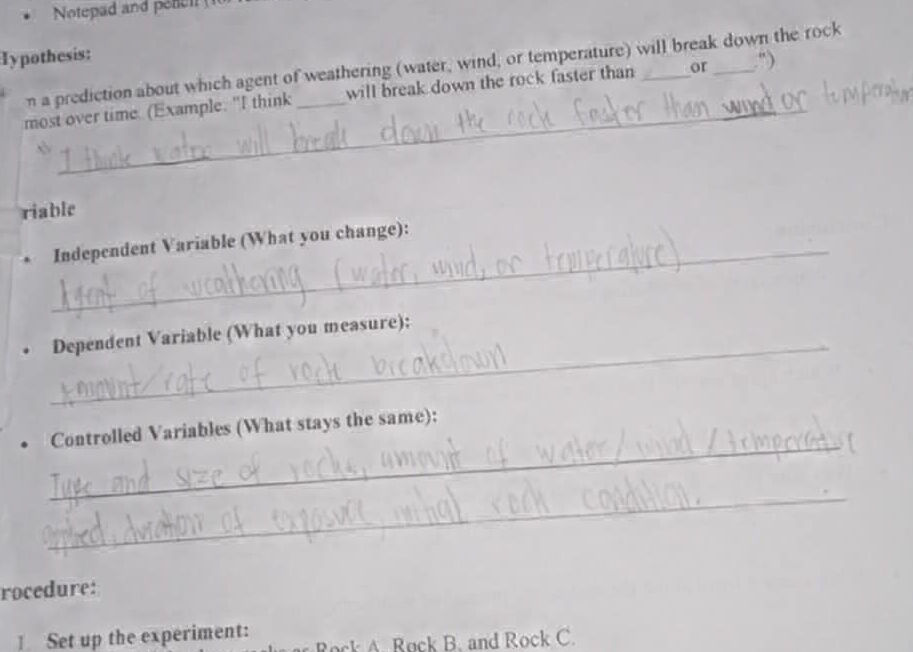 • Notepad and pencil
Hypothesis:
n a prediction about which agent of weathering (water, wind, or temperature) will break down the rock
most over time. (Example: "I think ______ will break down the rock faster than ______ or ______.")
I think water will break down the rock faster than wind or temperature
riable
• Independent Variable (What you change):
Agent of weathering (water, wind, or temperature)
• Dependent Variable (What you measure):
Amount/rate of rock breakdown
• Controlled Variables (What stays the same):
Type and size of rocks, amount of water/wind/temperature
applied, duration of exposure, initial rock condition.
rocedure:
1. Set up the experiment:
as Rock A, Rock B, and Rock C.